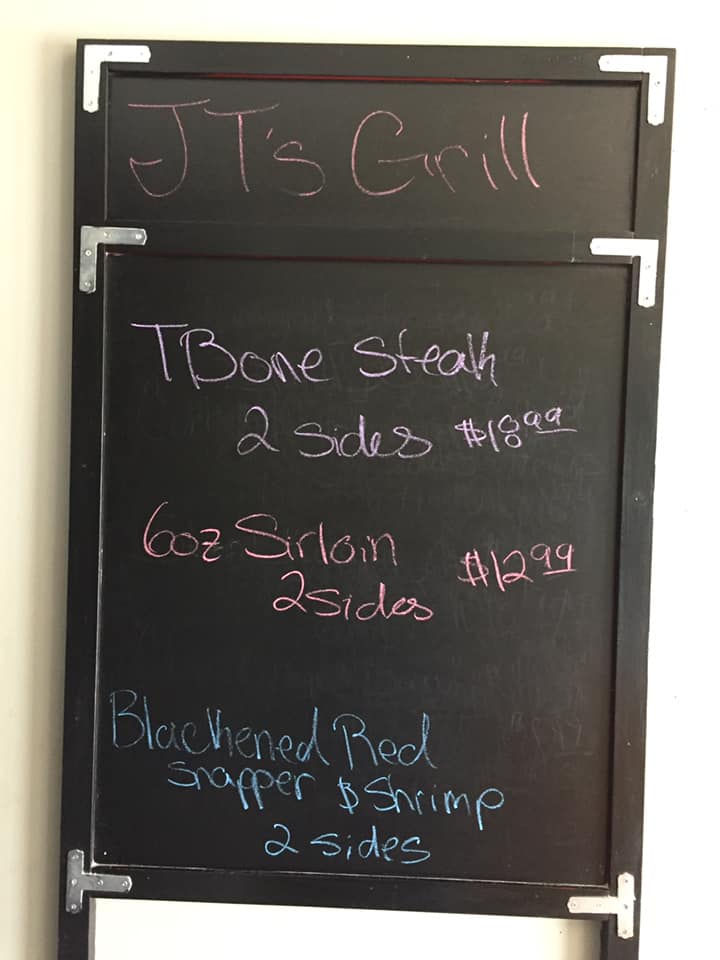 JT's Grill
TBone Steak
2 sides $18.99
6oz Sirloin $12.99
2 sides
Blackened Red
snapper & Shrimp
2 sides